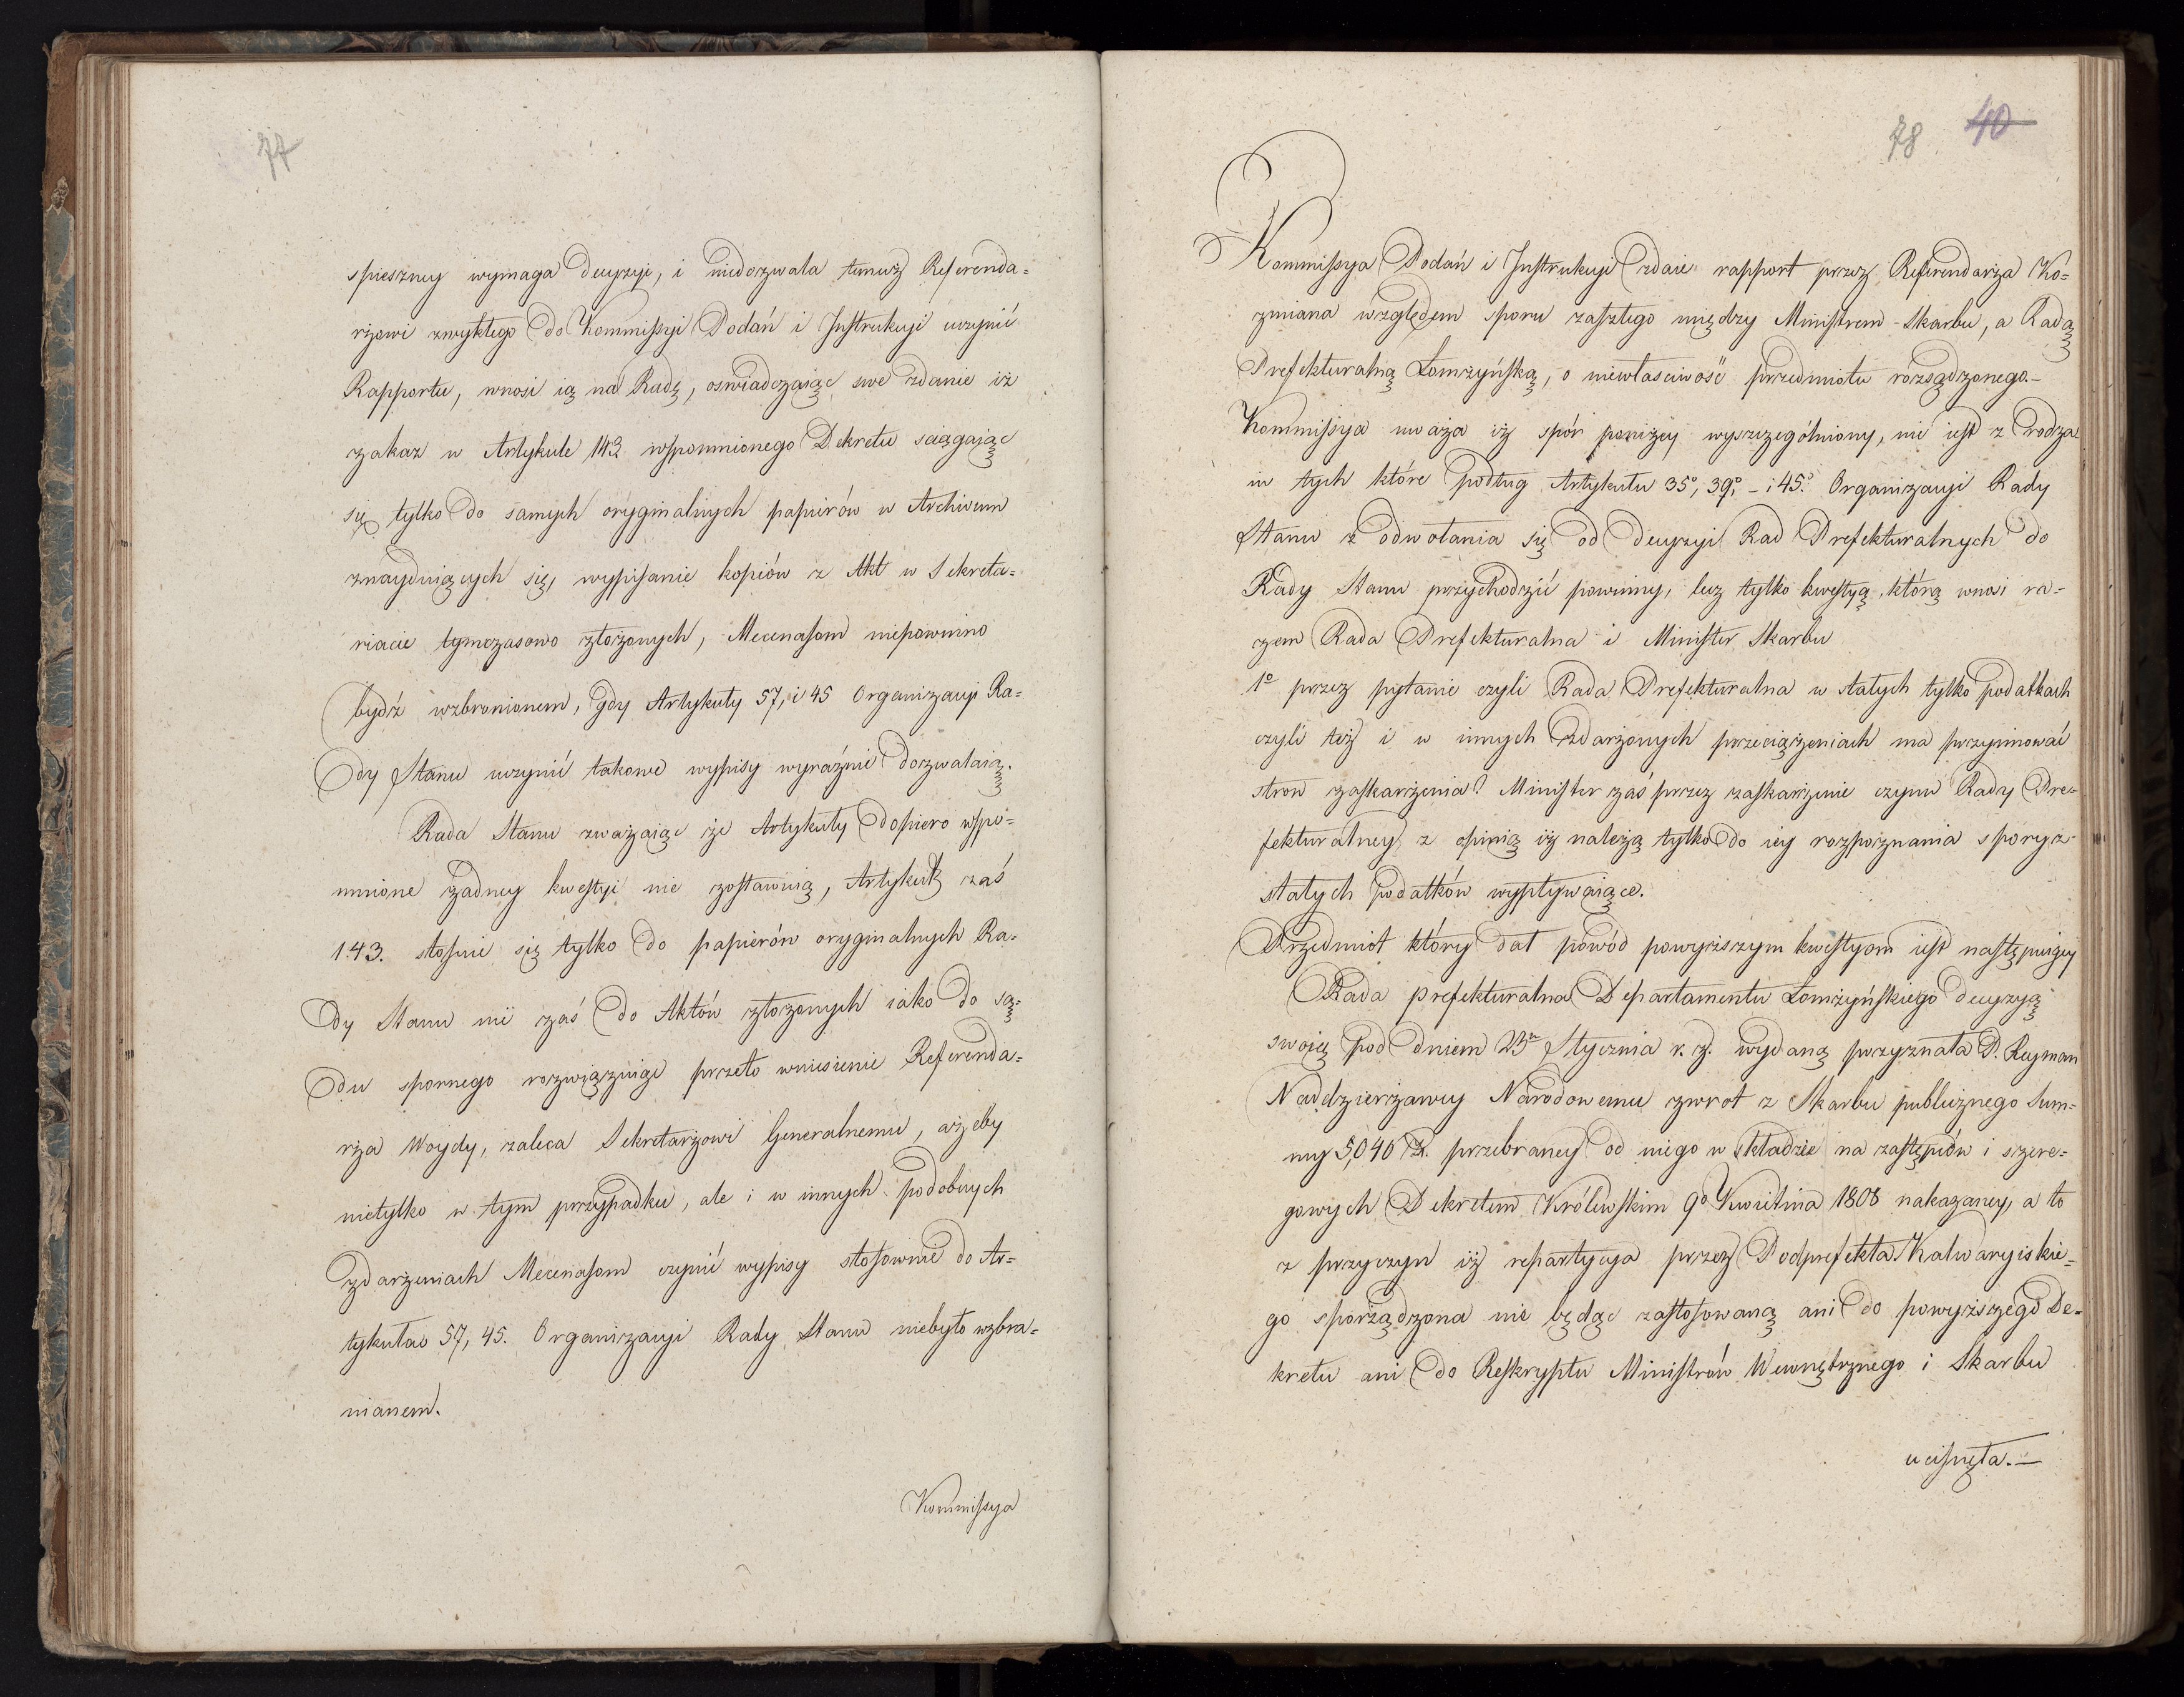 77
spieszney wymaga decyzyi, i niedozwala temuż Referenda=
rzowi zwykłego do Kommissyi Podań i Instrukcyi uczynić
Rapportu, wnosi ią na Radę, oswiadczaiąc swe zdanie iż
zakaz w Artykule 143 wspomnionego Dekretu sciągaiąc
się tylko do samych oryginalnych papierów w Archiwum
znayduiących się, wypisanie kopiów z Akt w Sekreta=
riacie tymczasowo złożonych, Mecenasom niepowinno
bydź wzbronionem, gdy Artykuły 57, i 45 Organizacyi Ra=
dy Stanu uczynić takowe wypisy wyraźnie dozwalaią.
Rada Stanu zważaiąc że Artykuły dopiero wspo=
mnione żadney kwestyi nie zostawuią, Artykuł zaś
143. stosuie się tylko do papierów oryginalnych Ra=
dy Stanu nie zaś do Aktów złożonych iako do są=
du spornego rozwiązuiąc przeto wniesienie Referenda=
rza Woydy, zaleca Sekretarzowi Generalnemu, ażeby
nietylko w tym przypadku, ale i w innych podobnych
zdarzeniach Mecenasom czynić wypisy stosownie do Ar=
tykułu 57, 45. Organizacyi Rady Stanu niebyło wzbra=
nianem.
Kommissya
78 40
Kommissya Podań i Instrukcyi zdaie rapport przez Referendarza Ko=
zmiana względem sporu zaszłego między Ministrem Skarbu, a Radą
Prefekturalną Łomżyńską, o niewłasciwość przedmiotu rozsądzonego.–
Kommissya uważa iż spór poniżey wyszczególniony, nie iest z rodza
iu tych które podług Artykułu 35°, 39°, – i 45.° Organizacyi Rady
Stanu z odwołania się od decyzyi Rad Prefekturalnych do
Rady Stanu przychodzić powinny, lecz tylko kwestyą, którą wnosi ra=
zem Rada Prefekturalna i Minister Skarbu
1° przez pytanie czyli Rada Prefekturalna w stałych tylko podatkach
czyli też i w innych zdarzonych przeciążeniach ma przyimować
stron zaskarżenia? Minister zaś przez zaskarżenie czynu Rady Pre=
fekturalney z opinią iż należą tylko do iey rozpoznania spory z
stałych podatków wypływaiące.
Przedmiot który dał powód powyższym kwestyom iest następuiący
Rada prefekturalna Departamentu Łomżyńskiego decyzyą
swoią pod dniem 23° Stycznia r. z. wydaną przyznała P. Reyman
Naddzierżawcy Narodowemu zwrot z Skarbu publicznego Sum=
my 5,040 Zł. przebraney od niego w składzie na zastępców i szere=
gowych Dekretem Królewskim 9° Kwietnia 1808 nakazaney, a to
z przyczyn iż repartycya przez Podprefekta Kalwaryiskie=
go sporządzona nie będąc zastosowaną ani do powyższego De=
kretu ani do Reskryptu Ministrów Wewnętrznego i Skarbu
ucisnęła.–